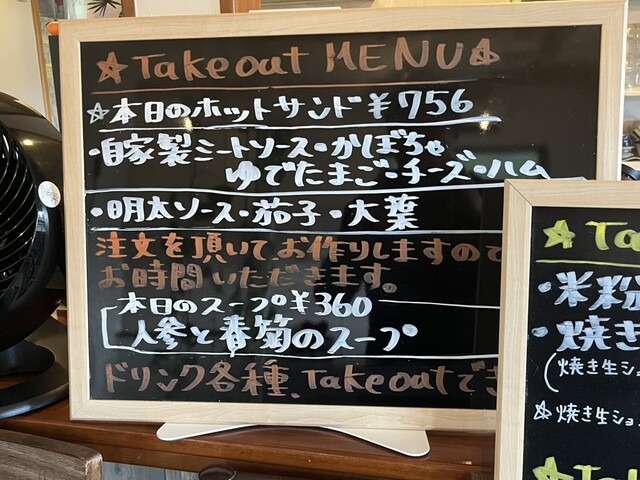 ☆Takeout MENU☆
☆本日のホットサンド¥756
・自家製ミートソース・かぼちゃ
ゆでたまご・チーズ・ハム
・明太ソース・茄子・大葉
注文を頂いてお作りしますので
お時間いただきます。
本日のスープ¥360
人参と春菊のスープ
ドリンク各種、Takeoutでき
☆Ta
・米粉
・焼き
(焼き生ショ
☆焼き生ショ
☆Tak